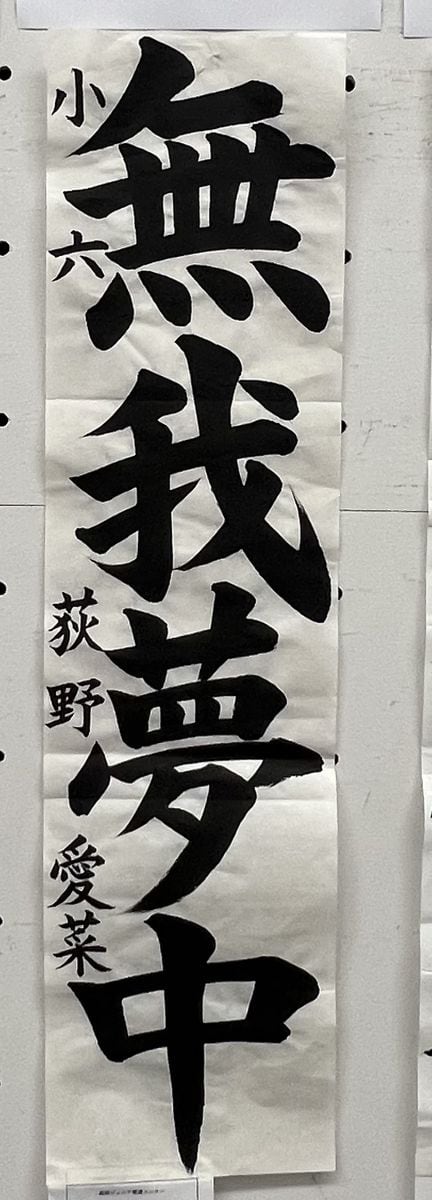 無我夢中
小六 荻野愛菜